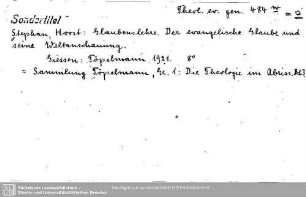 Theol. ev. gen. 484 m = 0
Sondertitel
Stephan, Horst: Glaubenslehre. Der evangelische Glaube und
seine Weltanschauung.
Giessen: Töpelmann 1921. 8°
= Sammlung Töpelmann, Gr. 1: Die Theologie im Abriss. Bd 3
Sächsische Landesbibliothek -
Staats- und Universitätsbibliothek Dresden